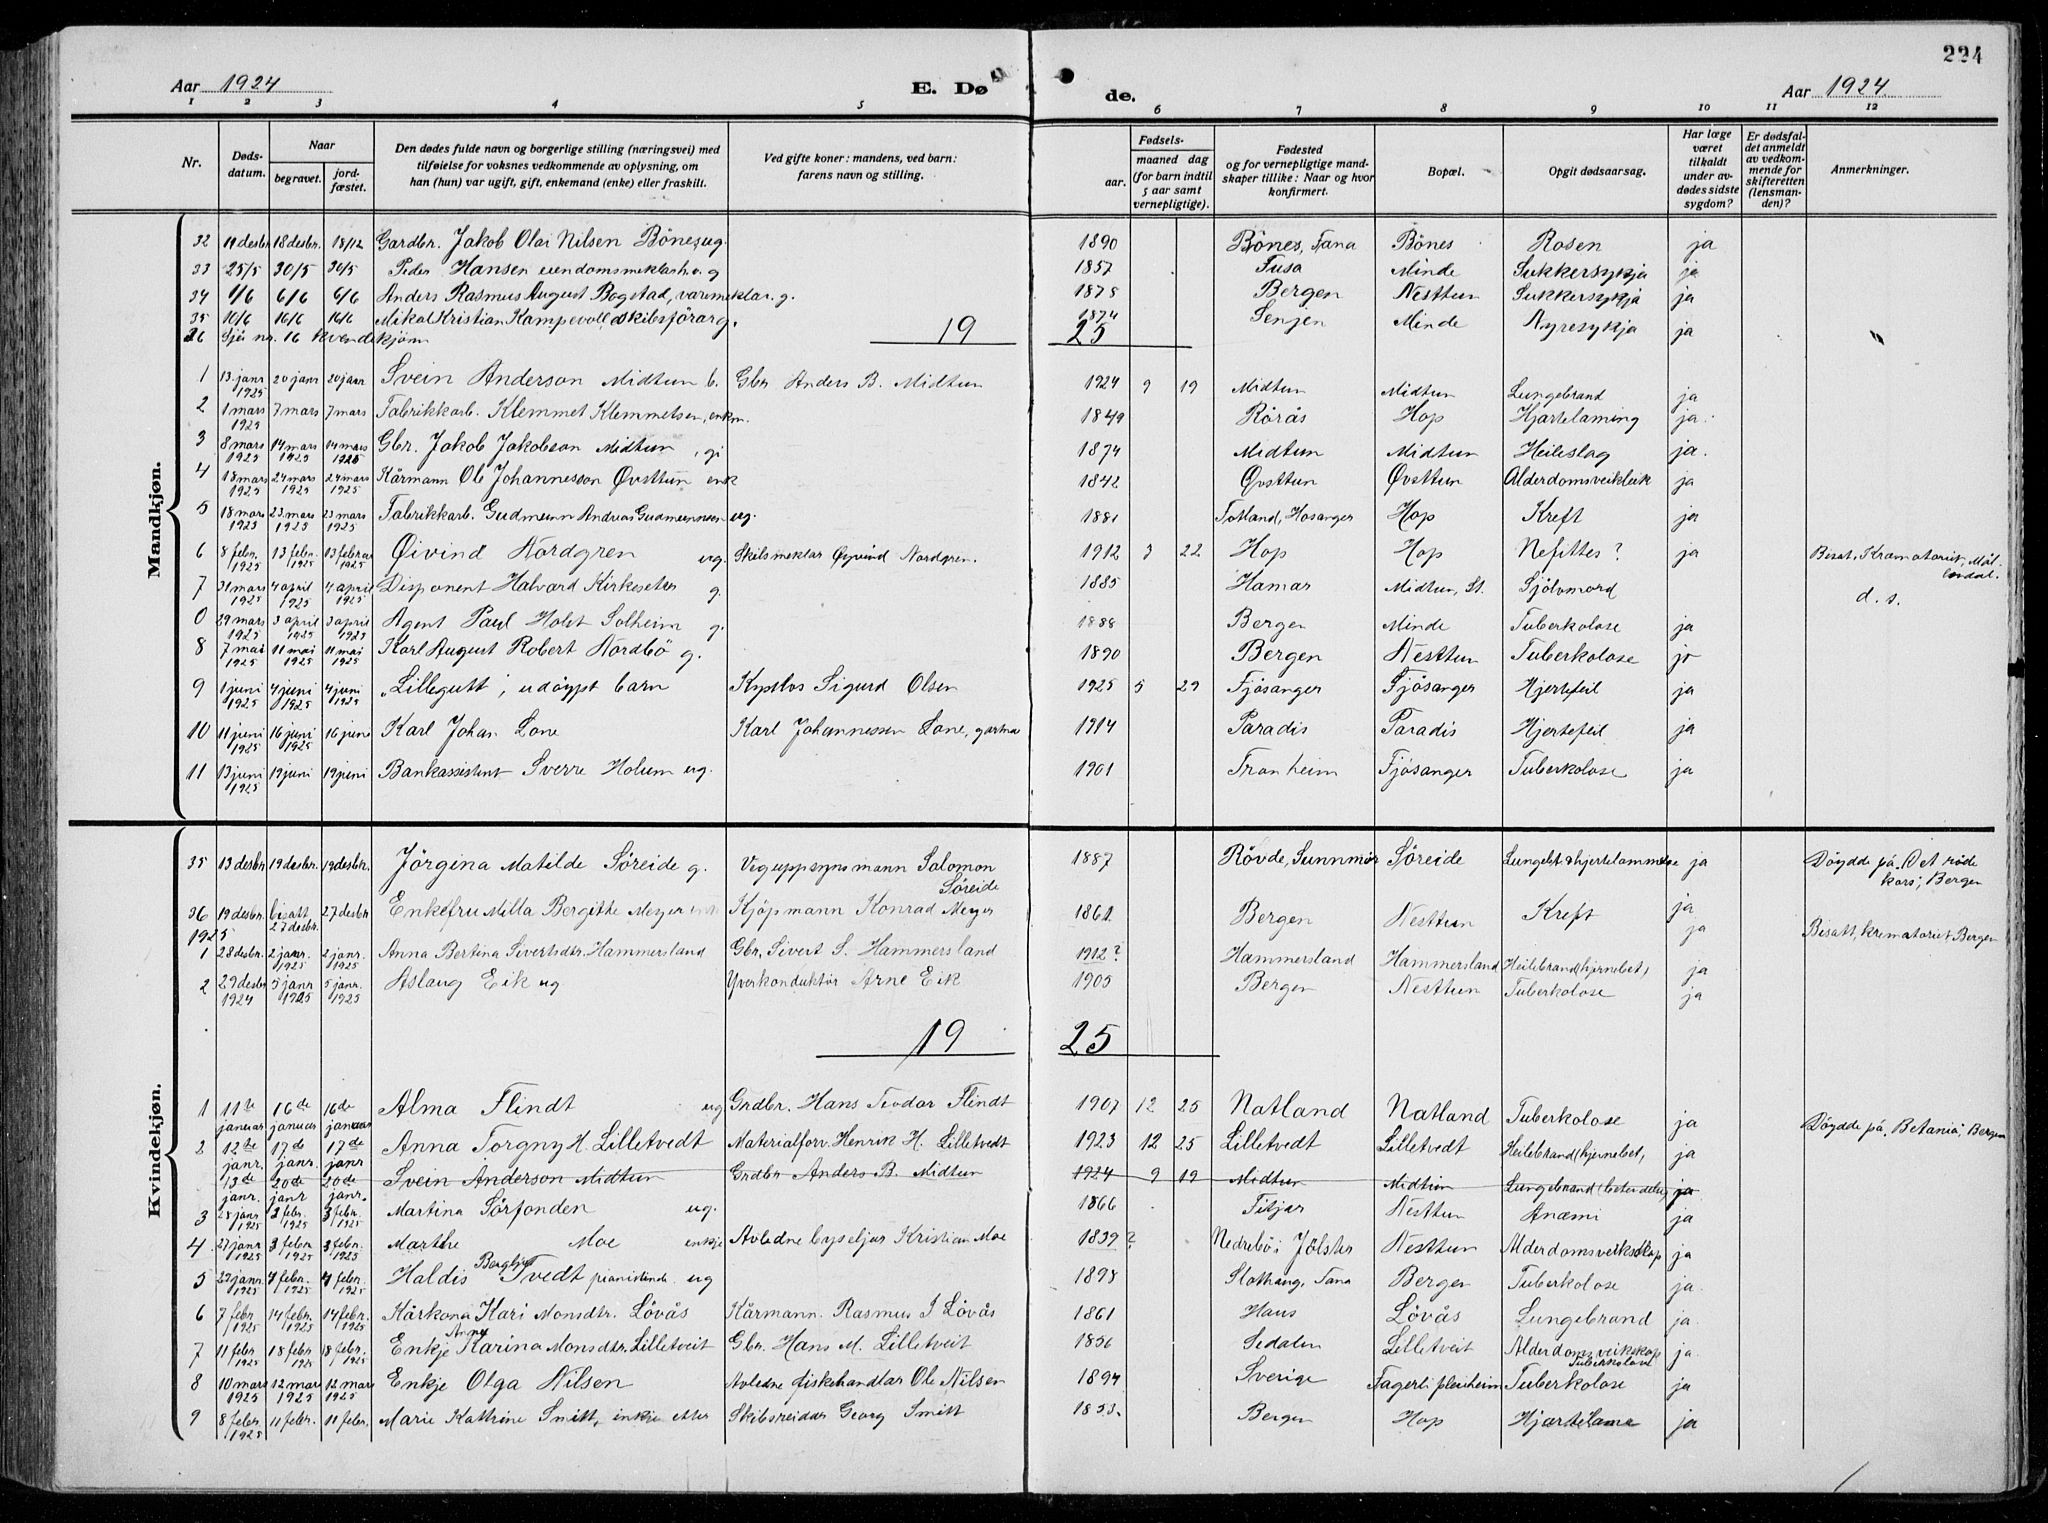 224
Aar 1924 E. Dø de. Aar 1924
1 2 3 4 5 6 7 8 9 10 11 12
Nr. Døds-datum. Naar begravet. jord-fæstet. Den dødes fulde navn og borgerlige stilling (næringsvei) med tilføielse for voksnes vedkommende av oplysning, om han (hun) var ugift, gift, enkemand (enke) eller fraskilt. Ved gifte koner: mandens, ved barn: farens navn og stilling. Fødsels- aar. maaned dag (for barn indtil 5 aar samt vernepligtige). Fødested og for vernepligtige mandskaper tillike: Naar og hvor konfirmert. Bopæl. Opgit dødsaarsag. Har læge været tilkaldt under avdødes sidste sygdom? Er dødsfaldet anmeldt av vedkommende for skifteretten (lensmanden)? Anmerkninger.
Mandkjøn.
32 11 desbr. 18 desbr. 18/12 Gardbr. Jakob Olai Nilsen Bönes ug. 1890 Bönes, Fana Bönes Rosen ja
33 25/5 30/5 30/5 Peder Hansen eiendomsmeklar g 1857 Fusa Minde Sukkersykja ja
34 1/6 6/6 6/6 Anders Rasmus August Bogstad, varemeklar. g. 1875 Bergen Nesttun Sukkersykja ja
35 10/6 16/6 16/6 Mikal Kristian Kampevoll skibsförar g. 1874 Senjen Minde Nyresykja ja
36 Sjå nr. 16 kvendekjøn 19 25
1 13 janr 1925 20 janr 20 janr Svein Anderson Midtun b. Gbr Anders B. Midtun 1924 9 19 Midtun Midtun Lungebrand ja
2 1 mars 1925 7 mars 7 mars Fabrikkarb. Klemmet Klemmetsen, enkm. 1849 Rörås Hop Hjartelaming ja.
3 8 mars 1925 14 mars 1925 14 mars 1925 Gbr. Jakob Jakobson Midtun, gi 1874 Midtun Midtun Heileslag ja.
4 18 mars 1925 24 mars 1925 24 mars 1925 Kårmann Ole Johannesson Øvsttun enk 1842 Øvsttun Øvsttun Alderdomsveikleik ja
5 18 mars 1925 23 mars 1925 23 mars 1925 Fabrikkarb. Gudmunn Andreas Gudmunnsen ug. 1881 Totland, Hosanger Hop Kreft ja
6 8 febr. 1925 13 febr. 1925 13 februar 1925 Øivind Nordgren ug. Skibsmeklar Øyvind Nordgren. 1912 3 22 Hop Hop Nefittes? ja Besat, Krematoriet, Möllendal.
7 31 mars 1925 4 april 1925 4 april 1925 Disponent Halvard Kirkeseter g. 1885 Hamar Midtun, St. Sjölvmord d. s.
0 29 mars 1925 3 april 1925 3 april 1925 Agent Paul Holst Solheim g. 1888 Bergen Minde Tuberkolose ja
8 7 mai 1925 11 mai 1925 11 mai 1925 Karl August Robert Nordbö g. 1890 Bergen Nesttun Tuberkolose ja
9 1 juni 1925 4 juni 1925 4 juni 1925 "Lillegutt", udöypt barn Sigurd Olsen 1925 5 29 Fjösanger Fjösanger Hjertefeil ja
10 11 juni 1925 16 juni 1925 16 juni Karl Johan Lone Karl Johannessen Lone, gartnar 1914 Paradis Paradis Hjertefeil ja
11 13 juni 1925 19 juni 19 juni Bankassistent Sverre Holum ug. 1901 Tronheim Fjösanger Tuberkolose ja
Kvindekjøn.
35 13 desbr 19 desbr. 19 desbr. Jörgina Matilde Söreide g. Veguppsynsmann Salomon Söreide 1887 Rövde, Sunnmör Söreide Lungebt. & hjertelammelse ja Döydde på "Det röde kors", Bergen
36 19 desbr. bisatt 27 desbr. 27 desbr Enkefru Milla Bergitte Meyer enk Kjöpmann Konrad Meyer 1861 Bergen Nesttun Kreft ja
1925
1 28 desbr. 2 janr. 1925 2 janr. 1925 Anna Bertina Sivertsdtr. Hammersland Gbr. Sivert S. Hammersland 1912? Hammersland Hammersland Heilebrand (hjernebet, ja Besatt, krematoriet Bergen
2 29 desbr 1924 5 janr 1925 5 janr. 1925 Aslaug Eik ug Yverkonduktör Arne Eik 1905 Bergen Nesttun Tuberkolose ja
19 25
1 11te januar 16de januar 16de januar Alma Flindt ug Grdbr. Hans Teodor Flindt 1907 12 25 Natland Natland Tuberkolose ja
2 12te janr. 17de janr. 17de janr Anna Torgny H. Lilletvedt Materialforv. Henrik H. Lilletvedt 1923 12 25 Lilletvedt Lilletvedt Heilebrand (hjernebet, ja Döydde på "Betania", Bergen
13de janr. 20de janr 20de janr. Svein Anderson Midtun Grdbr Anders B. Midtun 1924 9 19 Midtun Midtun Lungebrand ja
3 28 janr 1925 3 febr. 1925 3 febr. 1925 Martina Sörfonden ug. 1866 Fitjar Nesttun Anæmi ja
4 27 janr 1925 3 febr 1925 3 febr. 1925 Marthe Moe enkje Avledne lyseljar Kristian Moe 1839? Nedrebö i Jölster Nesttun Alderdomsveikskap ja
5 29 janr 1925 4 febr. 1925 4 febr. 1925 Haldis Bergljot Tvedt pianistinde. ug 1898 Slothaug, Fana Bergen Tuberkolose ja.
6 7 febr 1925 14 febr. 1925 14 febr. 1925 Kårkona Kari Monsdtr. Lövås Kårmann. Rasmus I Lövås 1861 Haus Lövås Lungebrand ja.
7 11 febr 1925 18 febr 1925 18 febr. 1925 Enkje Anna Karina Monsdtr. Lilletveit Gbr. Hans M. Lilletveit 1856 Sedalen Lilletveit Alderdomsveikskap Tuberkolose ja.
8 10 mars 1925 12 mar 1925 12 mars 1925 Enkje Olga Nilsen Avledne fiskehandlar Ole Nilsen 1894 Sverige Fagerli pleieheim Tuberkolose ja
9 8 febr 1925 11 febr. 11 febr. Marie Kattrine Smitt, enkje etter Skibsreidar Georg Smitt 1853. Bergen Hop Hjartelame ja